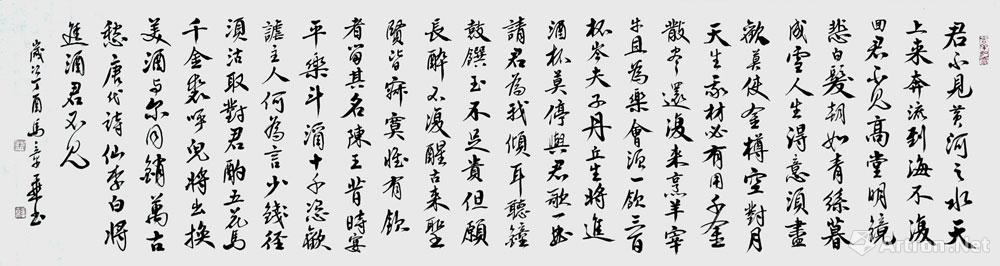 君不見黄河之水天
上来奔流到海不復
回君不見高堂明鏡
悲白髮朝如青絲暮
成雪人生得意須盡
歡莫使金樽空對月
天生我材必有用千金
散尽還復来烹羊宰
牛且為樂會須一飲三百
杯岑夫子丹丘生將進
酒杯莫停與君歌一曲
請君為我傾耳聽鐘
鼓饌玉不足貴但願
長醉不復醒古来聖
賢皆寂寞惟有飲
者留其名陳王昔時宴
平樂斗酒十千恣歡
謔主人何為言少錢徑
須沽取對君酌五花馬
千金裘呼兒將出換
美酒与尔同銷萬古
愁唐代詩仙李白將
進酒君不見
歲次丁酉馬華書
Artron.Net